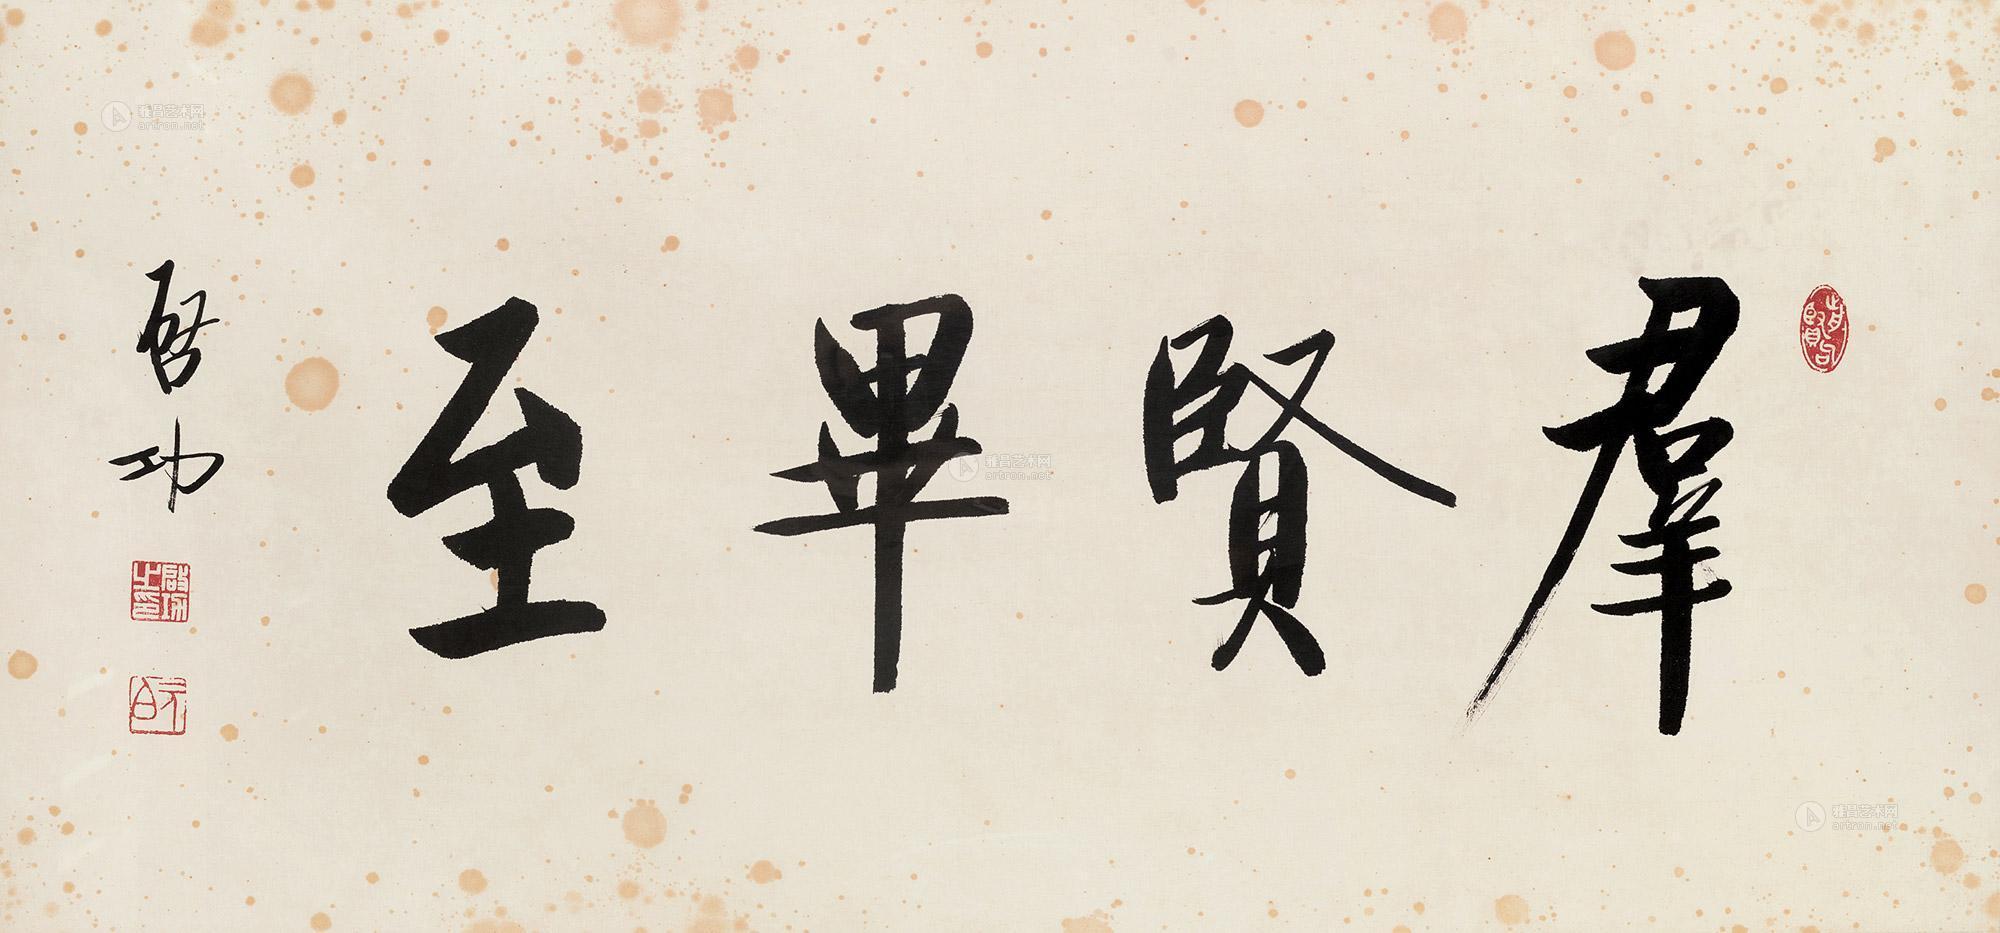 羣賢畢至
启功
啟功之印
雅昌艺术网
artron.net
雅昌艺术网
artron.net
雅昌艺术网
artron.net